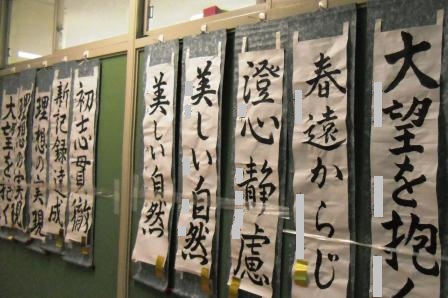 大望を抱く
春遠からじ
澄心静慮
美しい自然
美しい自然
初志貫徹
新記録達成
理想の実現
理想の実現
大望を抱く